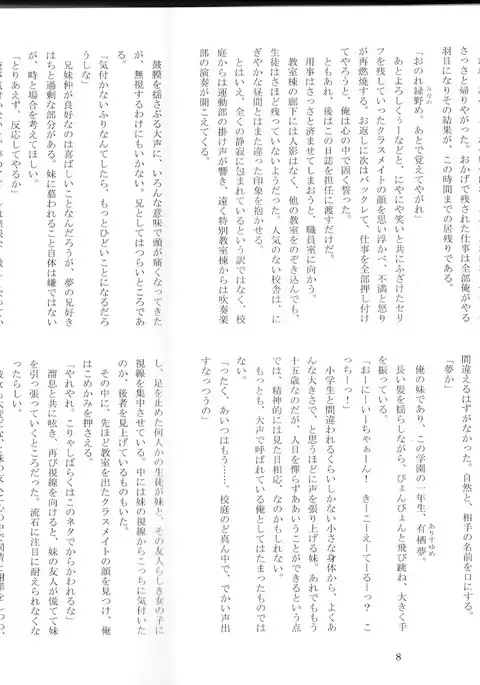 さっさと帰りやがった。おかげで残された仕事は全部俺がやる
羽目になりその結果が、この時間までの居残りである。
「おのれ緑野め。あとで覚えてやがれ」
みなの
あとよろしくぅーなどと、にやにや笑いと共にふざけたセリ
フを残していったクラスメイトの顔を思い浮かべ、不満と怒り
が再燃焼する。お返しに次はバックレて、仕事を全部押し付け
てやろうと、俺は心の中で固く誓った。
ともあれ、後はこの日誌を担任に渡すだけだ。
用事はさっさと済ませてしまおうと、職員室に向かう。
教室棟の廊下には人影はなく、他の教室をのぞき込んでも、
生徒はさほど残っていないようだった。人気のない校舎は、に
ぎやかな昼間とはまた違った印象を抱かせる。
とはいえ、全くの静寂に包まれているという訳ではなく、校
庭からは運動部の掛け声が響き、遠く特別教室棟からは吹奏楽
部の演奏が聞こえてくる。
間違えるはずがなかった。自然と、相手の名前を口にする。
「夢か」
俺の妹であり、この学園の一年生、有栖夢。
ありすゆめ
長い髪を揺らしながら、ぴょんぴょんと飛び跳ね、大きく手
を振っている。
「おーにーいーちゃぁーん！　きーこーえーてーるーっ？　こ
っちーっ！」
小学生と間違われるくらいしかない小さな身体から、よくあ
んな大きさで、と思うほどに声を張り上げる妹。あれでももう
十五歳なのだが、人目を憚らずああいうことができるという点
では、精神的には見た目相応、なのかもしれない。
もっとも、大声で呼ばれている俺としてはたまったものでは
ない。
「ったく、あいつはもう……。校庭のど真ん中で、でかい声出
すなっつうの」
鼓膜を揺さぶる大声に、いろんな意味で頭が痛くなってきた
が、無視するわけにもいかない。兄としてはつらいところであ
る。
「気付かないふりなんてしたら、もっとひどいことになるだろ
うしな」
兄妹仲が良好なのは喜ばしいことなんだろうが、夢の兄好き
はちと過剰な部分がある。妹に慕われること自体は嫌ではない
が、時と場合を考えてほしい。
「とりあえず、反応してやるか」
し、足を止めた何人かの生徒が妹と、その友人らしき女の子に
視線を集中させている。中には妹の視線からこっちに気付いた
のか、後者を見上げているものもいた。
その中に、先ほど教室を出たクラスメイトの顔を見つけ、俺
はこめかみを押さえる。
「やれやれ。こりゃしばらくはこのネタでからかわれるな」
溜息と共に呟き、再び視線を向けると、妹の友人が慌てて妹
を引っ張っていくところだった。流石に注目に耐えられなくな
ったらしい。
8